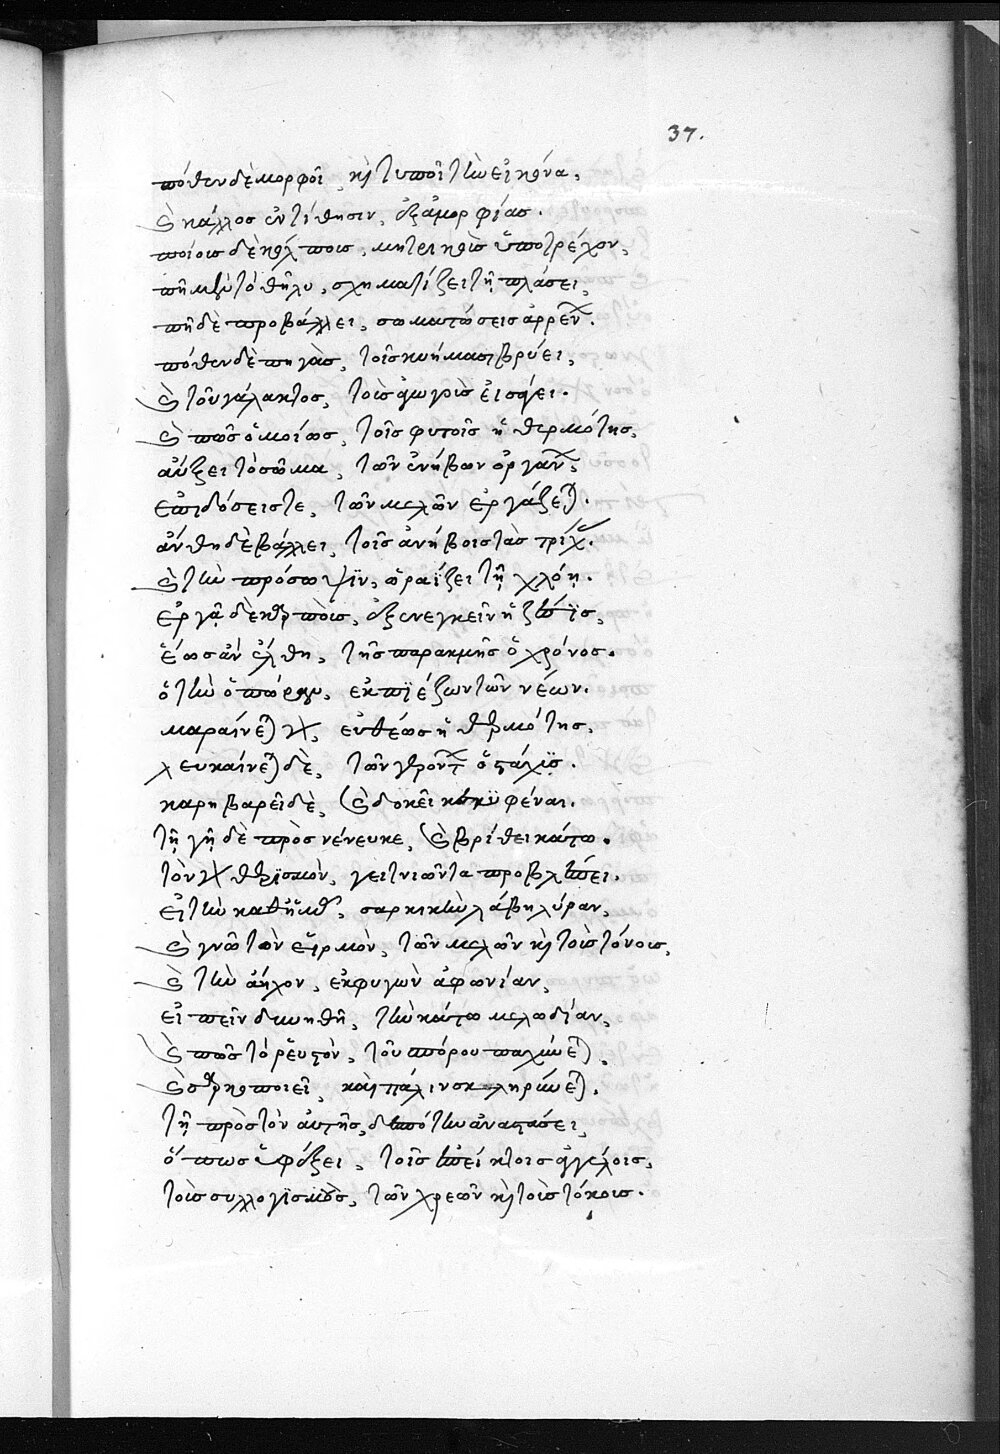 37.
πόθεν δὲ μορφοῖ, κὴ τυποῖ τὴν εἰκόνα,
καὶ κάλλος ἐντίθησιν, ἐξ ἀμορφίας.
ποίοις δὲ κόλποις, μητρικοῖς ὑποτρέχον,
πῆ μὲν τὸ θῆλυ, σχηματίζει τῇ πλάσει,
πῆ δὲ προβάλλει, σωματώσεις ἀρρένων.
πόθεν δὲ πηγὰς, τοῖς κυήμασι βρύει,
καὶ τοῦ γάλακτος, τοὺς ἀγωγοὺς εἰσάγει.
καὶ πῶς ὁμοίως, τοῖς φυτοῖς ἡ θερμότης,
αὔξει τὸ σῶμα, τῶν ἐνήβων ὀργάνων,
ἐπιδόσεις τε, τῶν μελῶν ἐργάζεται.
ἄνθη δὲ βάλλει, τοῖς ἀνήβοις τὰς τρίχας.
καὶ τὴν πρόσοψιν, ὡραΐζει τῇ χλόῃ.
ἐργᾷ δὲ καρποὺς, ἐξενεγκεῖν ἡ ζέσις,
ἕως ἂν ἔλθῃ, τῆς παρακμῆς ὁ χρόνος.
ὁ τὴν ὀπώραν, ἐκπιέζων τῶν νέων.
μαραίνεται γὰρ, εὐθέως ἡ θερμότης,
λευκαίνεται δὲ, τῶν γερόντων ὁ στάχυς.
καρηβαρεῖ δὲ, καὶ δοκεῖ κεκυφέναι.
τῇ γῇ δὲ προσνένευκε, καὶ βρίθει κάτω.
τὸν γὰρ θερισμὸν, γειτνιῶντα προβλέπει.
εἰ τὴν καθ' ἡμᾶς, σαρκικὴν λάβῃ λύραν,
καὶ γνῶ τὸν εἱρμὸν, τῶν μελῶν κὴ τοὺς τόνους,
καὶ τὴν ἄηχον, ἐκφυγὼν ἀφωνίαν,
εἰπεῖν δυνηθῇ, τὴν κάτω μελωδίαν,
καὶ πῶς τὸ ῥευστὸν, τοῦ πόρου παχύνεται,
καὶ σαρκοποιεῖ, καὶ πάλιν σκληρύνεται.
τῇ πρὸς τὸν αὐτῆς, δεσπότην ἀναστάσει,
ὅπως ὑφέξει, τοῖς ἐπείκτοις ἀγγέλοις,
τοὺς συλλογισμοὺς, τῶν χρεῶν κὴ τοὺς τόκους.